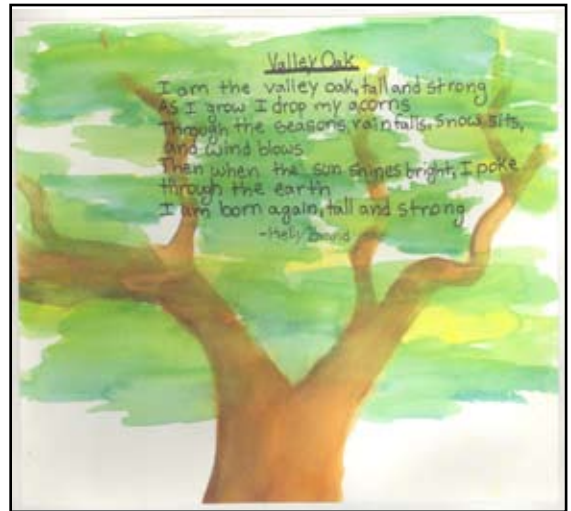 Valley Oak
I am the valley oak, tall and strong
As I grow I drop my acorns
Through the seasons rain falls, snow sits,
and wind blows
Then when the sun shines bright, I poke
through the earth
I am born again, tall and strong
-Kelly